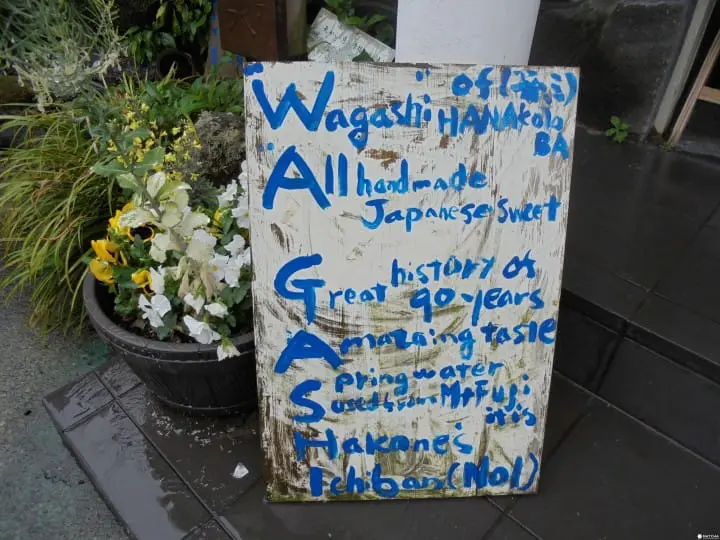 "Wagashi" of (
HANAkolo
BA
"All handmade
Japanese sweet
history of
Great 90-years
Amazaing taste
Spring water
used from Mt Fuji
it is
Hakone's
Ichiban (No1)